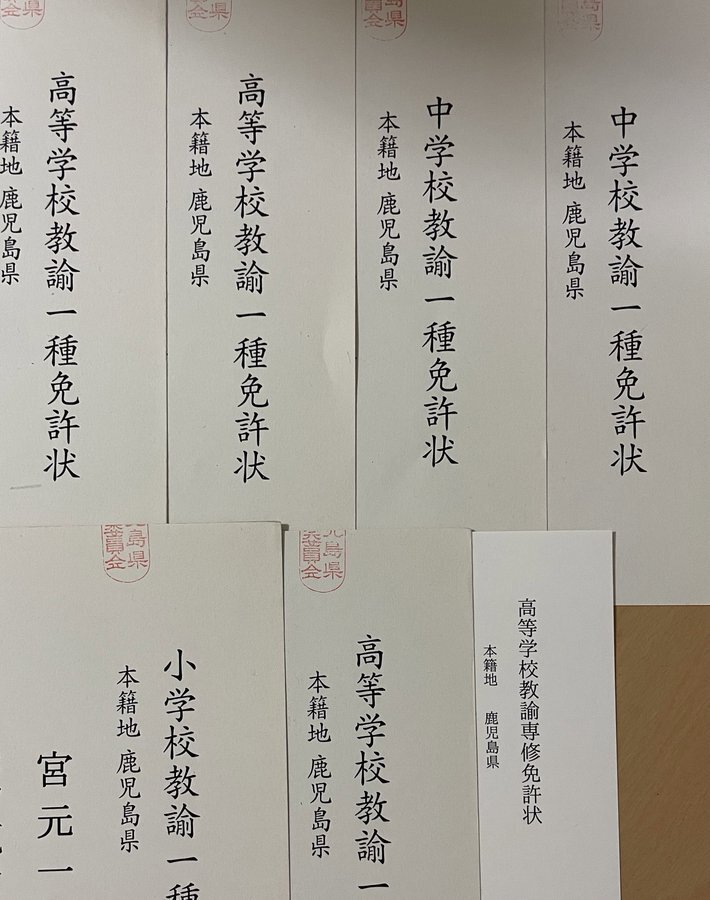 中学校教諭一種免許状
本籍地 鹿児島県
中学校教諭一種免許状
本籍地 鹿児島県
高等学校教諭一種免許状
本籍地 鹿児島県
高等学校教諭一種免許状
本籍地 鹿児島県
高等学校教諭専修免許状
本籍地 鹿児島県
高等学校教諭一
本籍地 鹿児島県
小学校教諭一種
本籍地 鹿児島県
宮元一